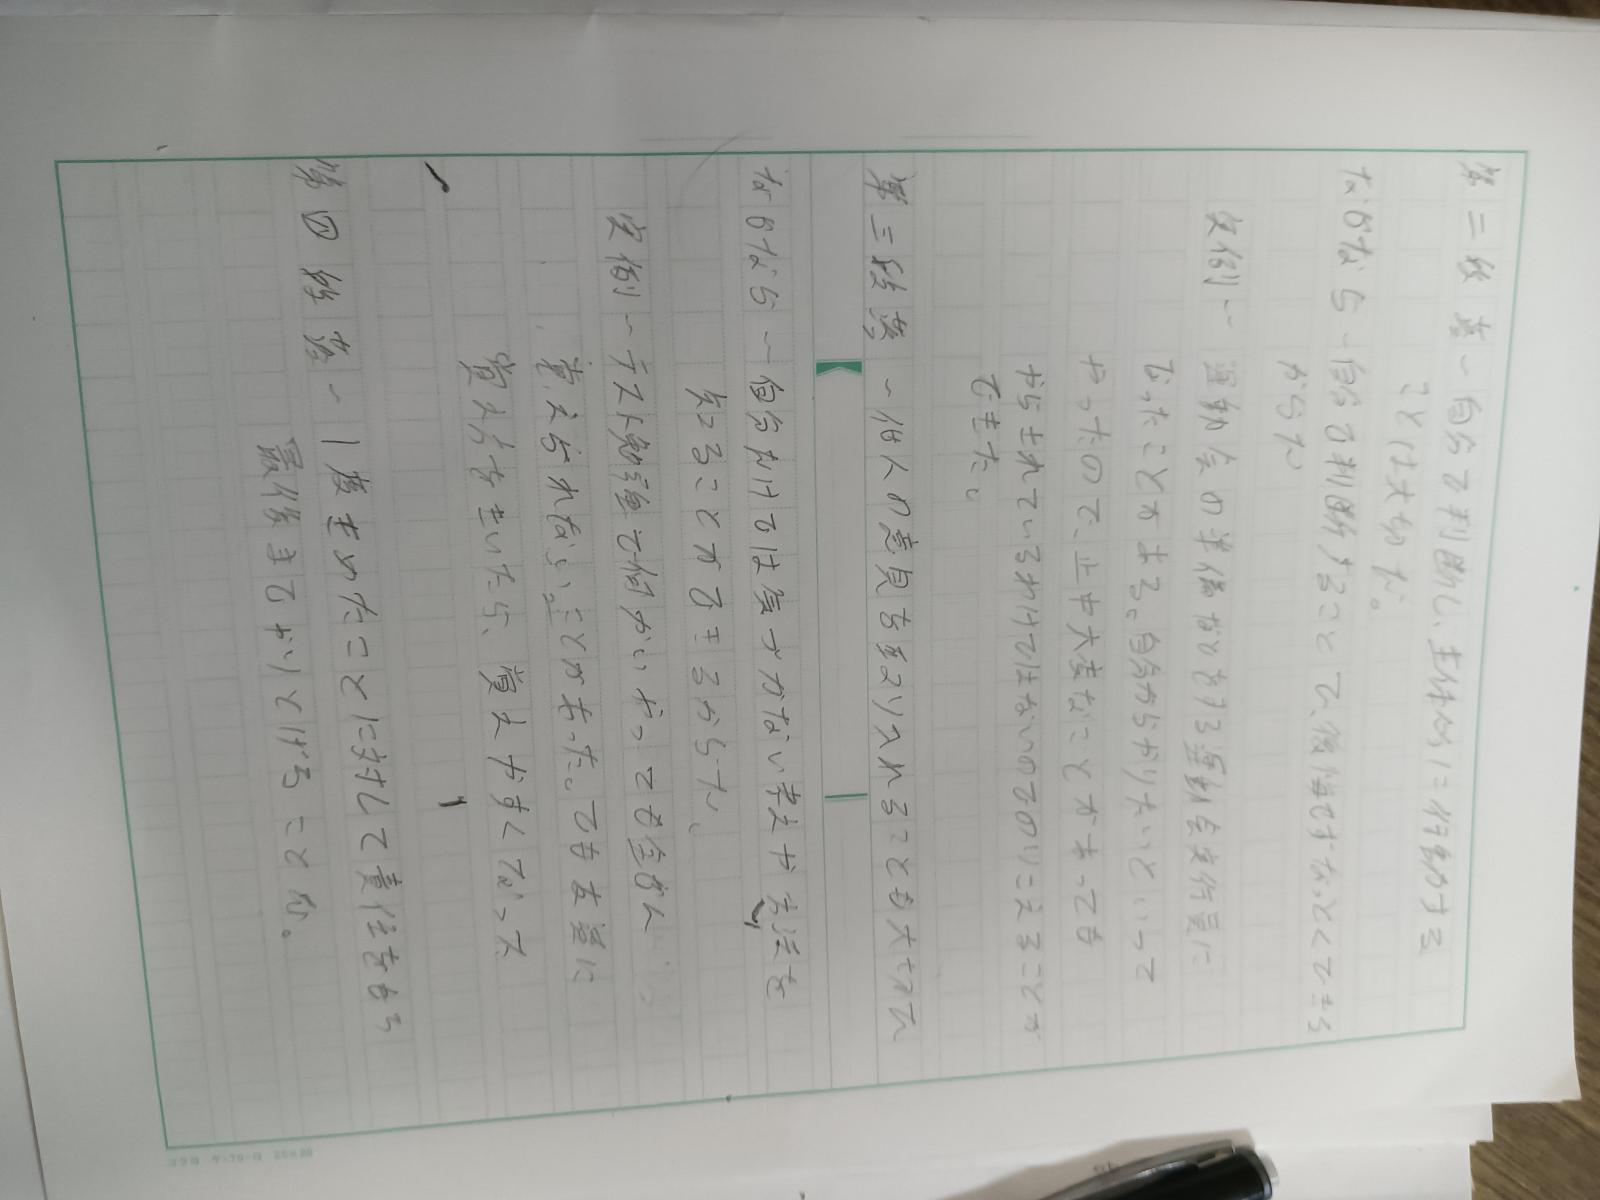 第二段落ー自分で判断し、主体的に行動する
ことは大切だ。
なぜなら ー自分で判断することで、後悔せずなっとくできる
からだ
実例ー運動会の準備などをする運動会実行委員に
なったことがある。自分からやりたいといって
やったので、途中大変なことがあっても
やらされているわけではないのでのりこえることが
できた。
第三段落 ー他人の意見を取り入れることも大切だ
なぜなら ー自分だけでは気づかない考えや方法を
知ることができるからだ、
実例ーテスト勉強で何かいやっても全ぜん
覚えられないことがあった。でも友達に
覚え方をきいたら、覚えやすくなった
第四段落ー1度きめたことに対して責任をもち
最後までやりとげることだ。
コクヨ ケ-70-G 20×20